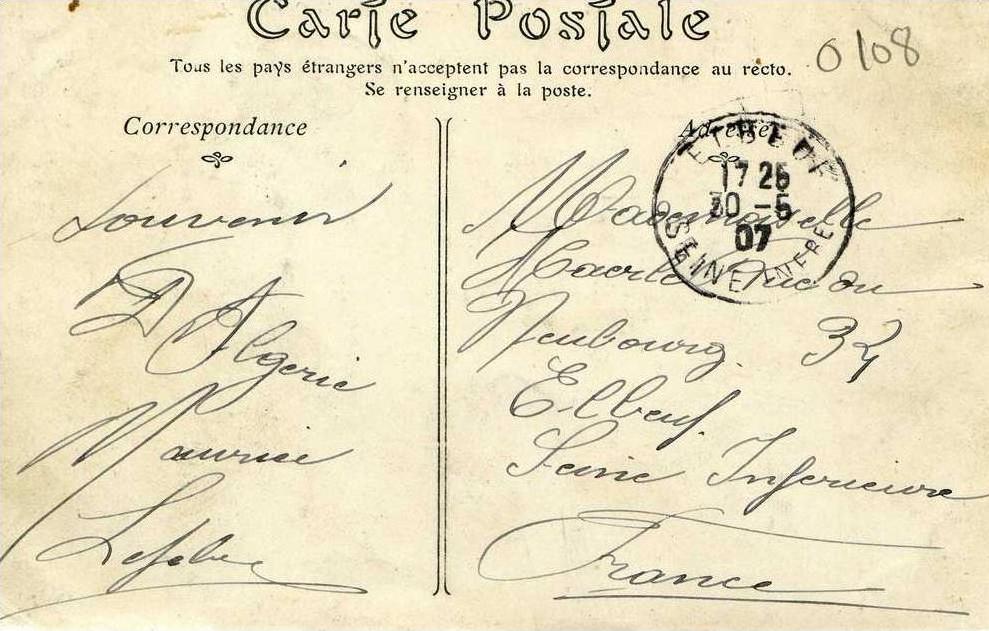 Carte Postale
0108
Tous les pays étrangers n'acceptent pas la correspondance au recto.
Se renseigner à la poste.
Correspondance
Souvenir
D'Algerie
Maurice
Lefebvre
Adresse
Mademoiselle
Rue du
Neubourg. 32
Elbeuf.
Seine Inferieure
France
ELBEUF
17 25
30 -5
07
SEINE INFRE